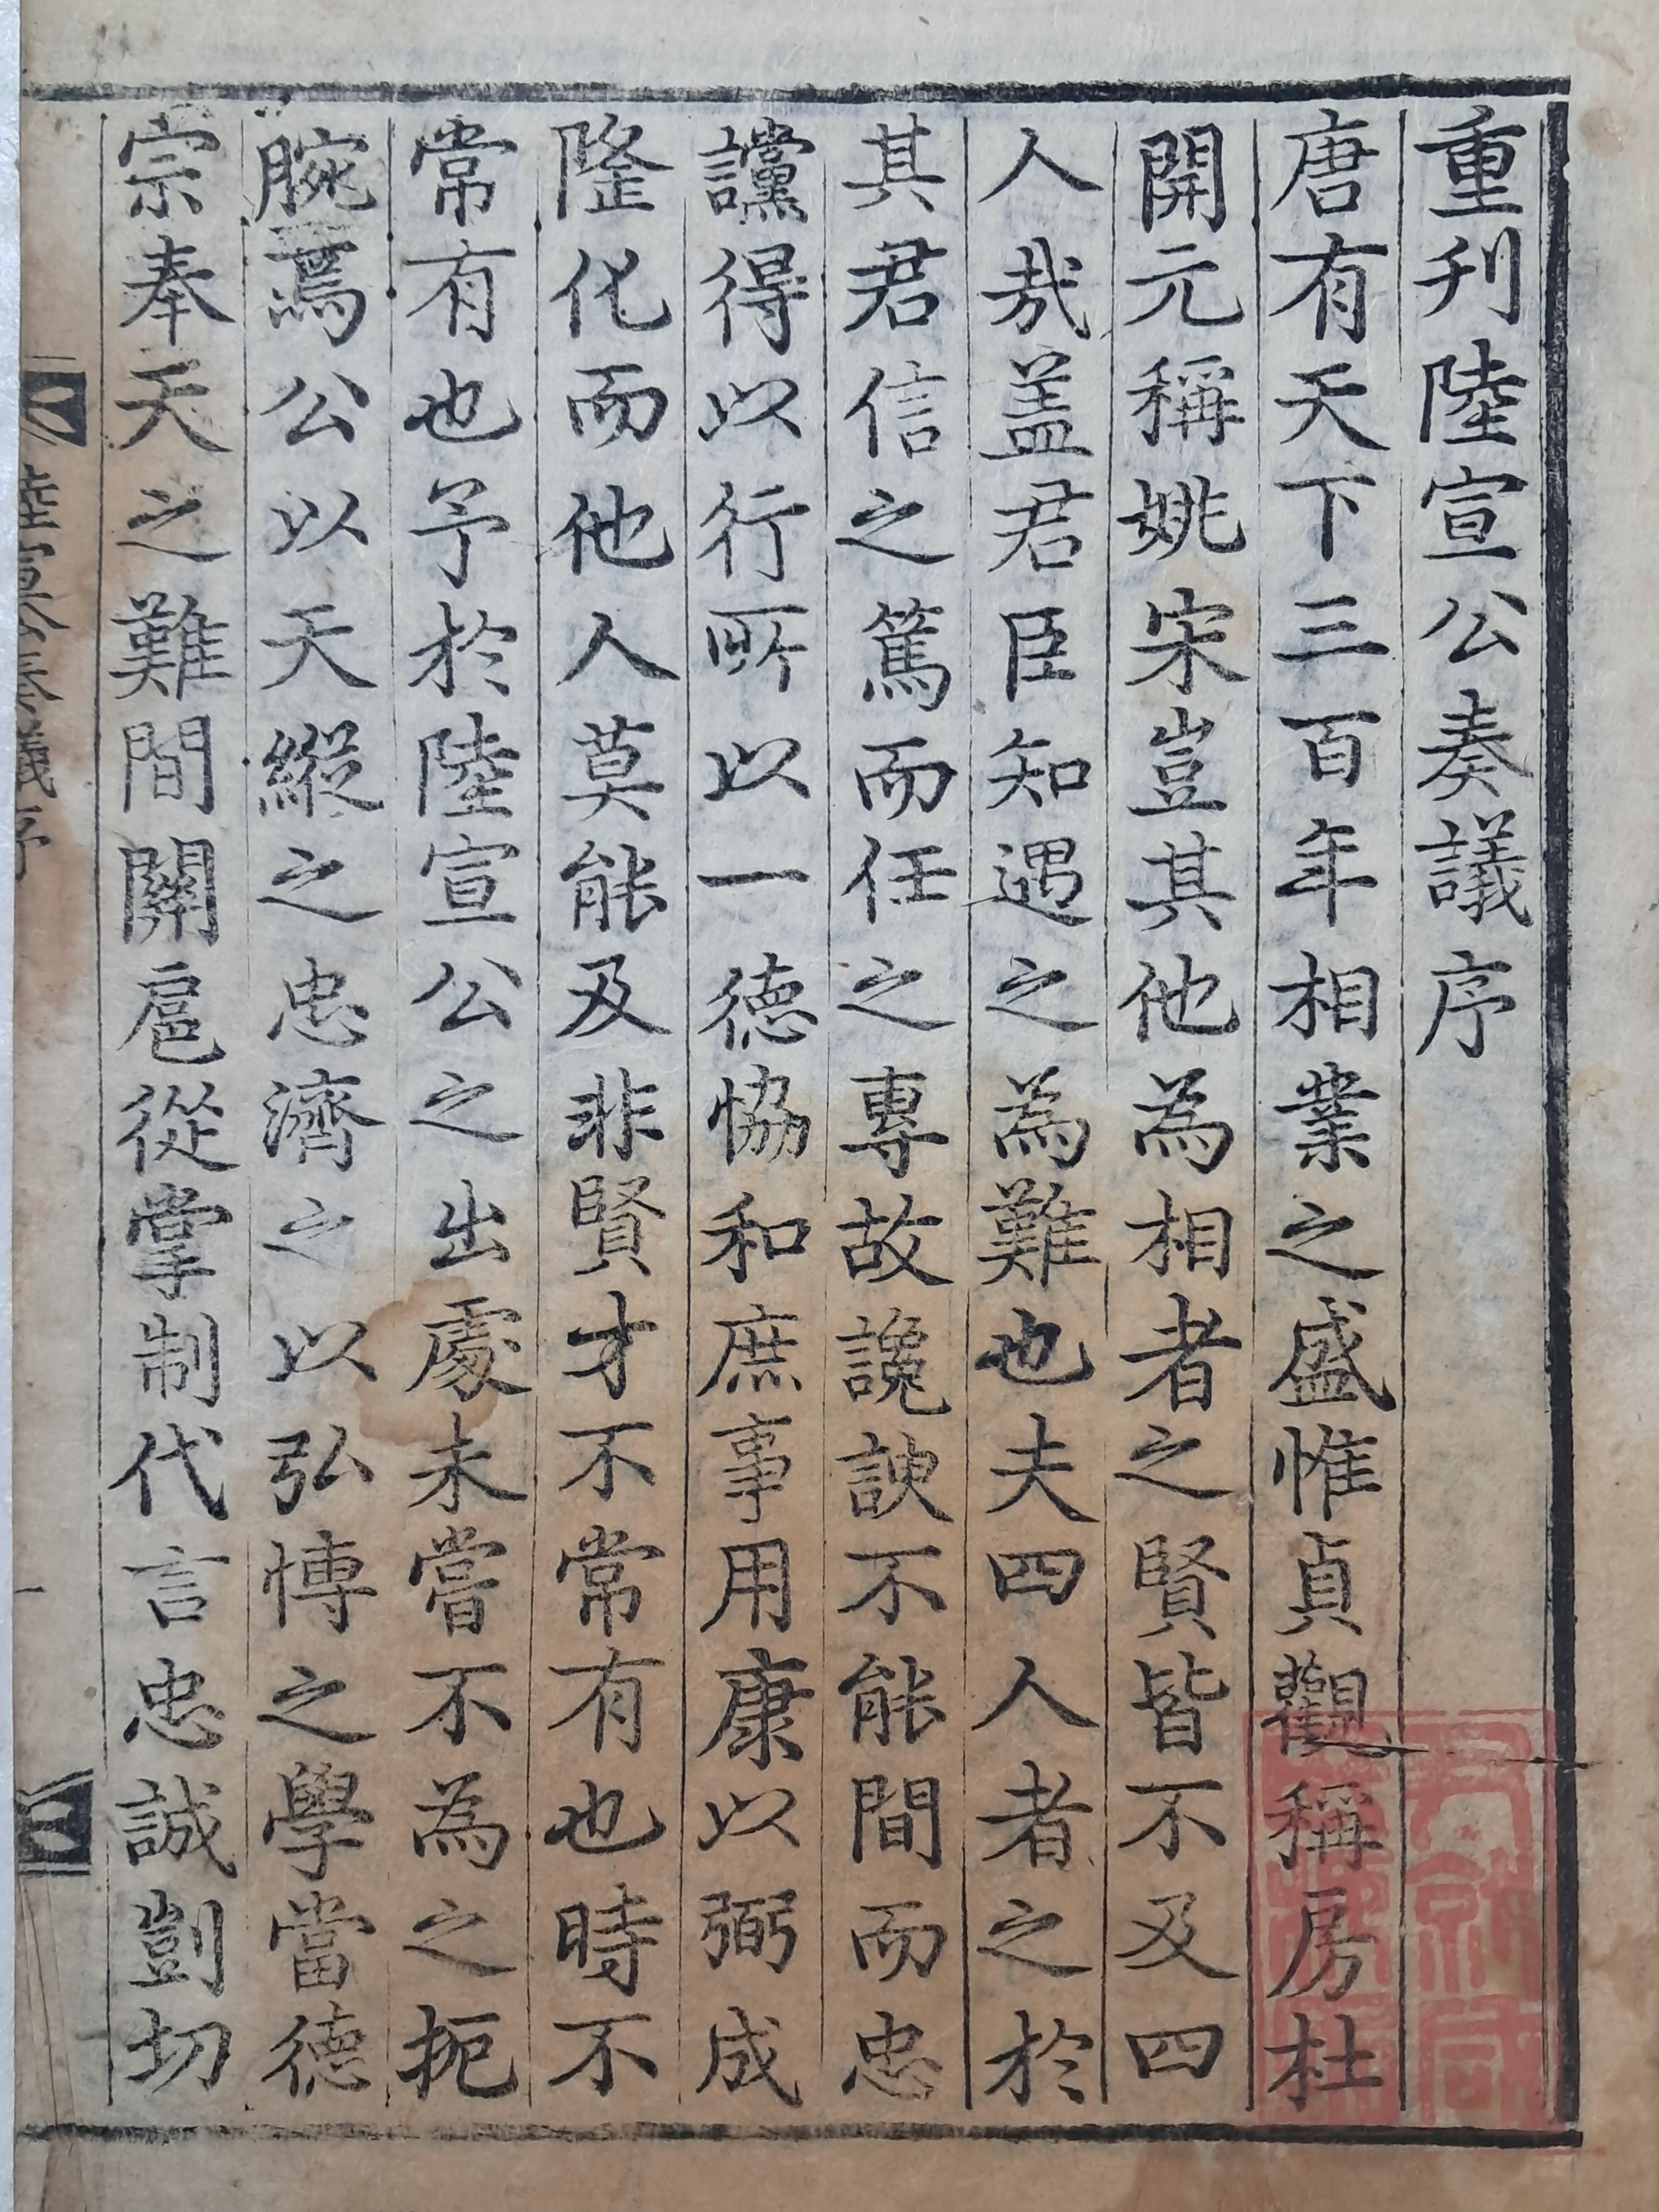 重刊陸宣公奏議序
唐有天下三百年相業之盛惟貞觀稱房杜
開元稱姚宋豈其他為相者之賢皆不及四
人哉盖君臣知遇之為難也夫四人者之於
其君信之篤而任之專故讒諛不能間而忠
讜得以行所以一德恊和庶事用康以弼成
隆化而他人莫能及非賢才不常有也時不
常有也予於陸宣公之出處未嘗不為之扼
腕焉公以天縱之忠濟之以弘博之學當德
宗奉天之難間關扈從掌制代言忠誠剴切